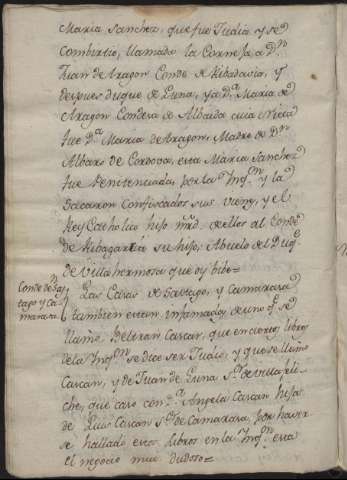 Maria Sanchez, que fue Judia y se
combirtio, llamada la Corneja a Dn
Juan de Aragon Conde de Ribadavia, y
despues duque de Luna, y a Da Maria de
Aragon Condesa de Albaida cuia Nieta
fue Da Maria de Aragon, Madre de Dn
Albaro de Cordova, esta Maria Sanchez
fue Penitenciada por la Inqn y la
sacaron Confiscados sus vienes, y el
Rey Catholico hiso mrd. de ellos al Conde
de Ribagarza su hijo, Abuelo del Duqe
de Villahermosa que oy bibe=
Conde de San
tago y Ca
marasa
Las Casas de Santiago, y Camarasa
tambien estan infamadas de uno qe se
llamo, Beltran Cascan, que en ciertos libros
de la Inqn se dice ser Judio, y que se llamo
Cascan, y de Juan de Luna Sr de Villafeli-
che, que caso con Da Angela Cascan hija
de Luis Cascan Sr de Camarasa, por haver
se hallado estos libros en la Inqn esta
el negocio mui dudoso=